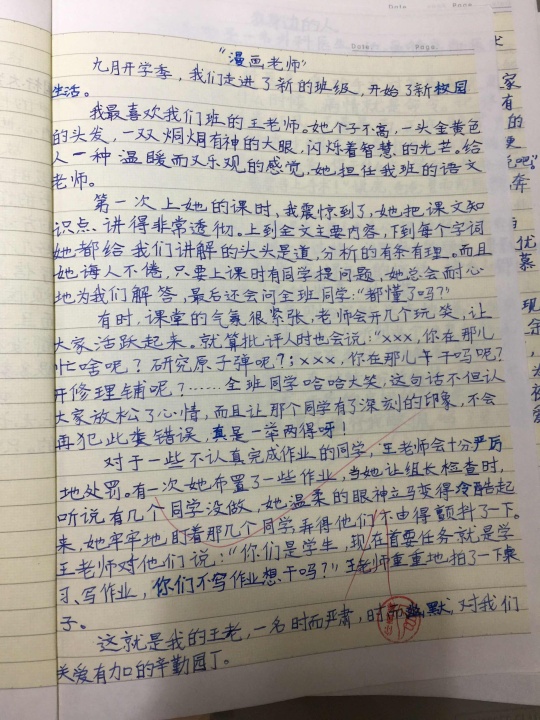 Date Page
"漫画老师"
九月开学季，我们走进了新的班级，开始了新校园
生活。
我最喜欢我们班的王老师。她个子不高，一头金黄色
的头发，一双炯炯有神的大眼，闪烁着智慧的光芒。给
人一种温暖而又乐观的感觉，她担任我班的语文
老师。
第一次上她的课时，我震惊到了，她把课文知
识点、讲得非常透彻。上到全文主要内容，下到每个字词
她都给我们讲解的头头是道，分析的有条有理。而且
她诲人不倦，只要上课时有同学提问题，她总会耐心
地为我们解答，最后还会问全班同学："都懂了吗？"
有时，课堂的气氛很紧张，老师会开几个玩笑，让
大家活跃起来。就算批评人时也会说："xxx，你在那儿
忙啥呢？研究原子弹呢？；xxx，你在那儿干吗呢？
开修理铺呢？……全班同学哈哈大笑，这句话不但让
大家放松了心情，而且让那个同学有了深刻的印象，不会
再犯此类错误，真是一举两得呀！
对于一些不认真完成作业的同学，王老师会十分严厉
地处罚。有一次她布置了一些作业，当她让组长检查时，
听说有几个同学没做，她温柔的眼神立马变得冷酷起
来，她牢牢地，盯着那几个同学，弄得他们不由得颤抖了一下。
王老师对他们说："你们是学生，现在首要任务就是学
习、写作业，你们不写作业想干吗？"王老师重重地拍了一下桌
子。
这就是我的王老，一名时而严肃，时而幽默，对我们
关爱有加的辛勤园丁。